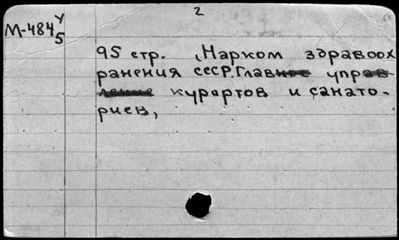 2
М-484 у/5
95 стр. , Нарком здравоох
ранения СССР, Главное управ
ление курортов и санато-
риев,